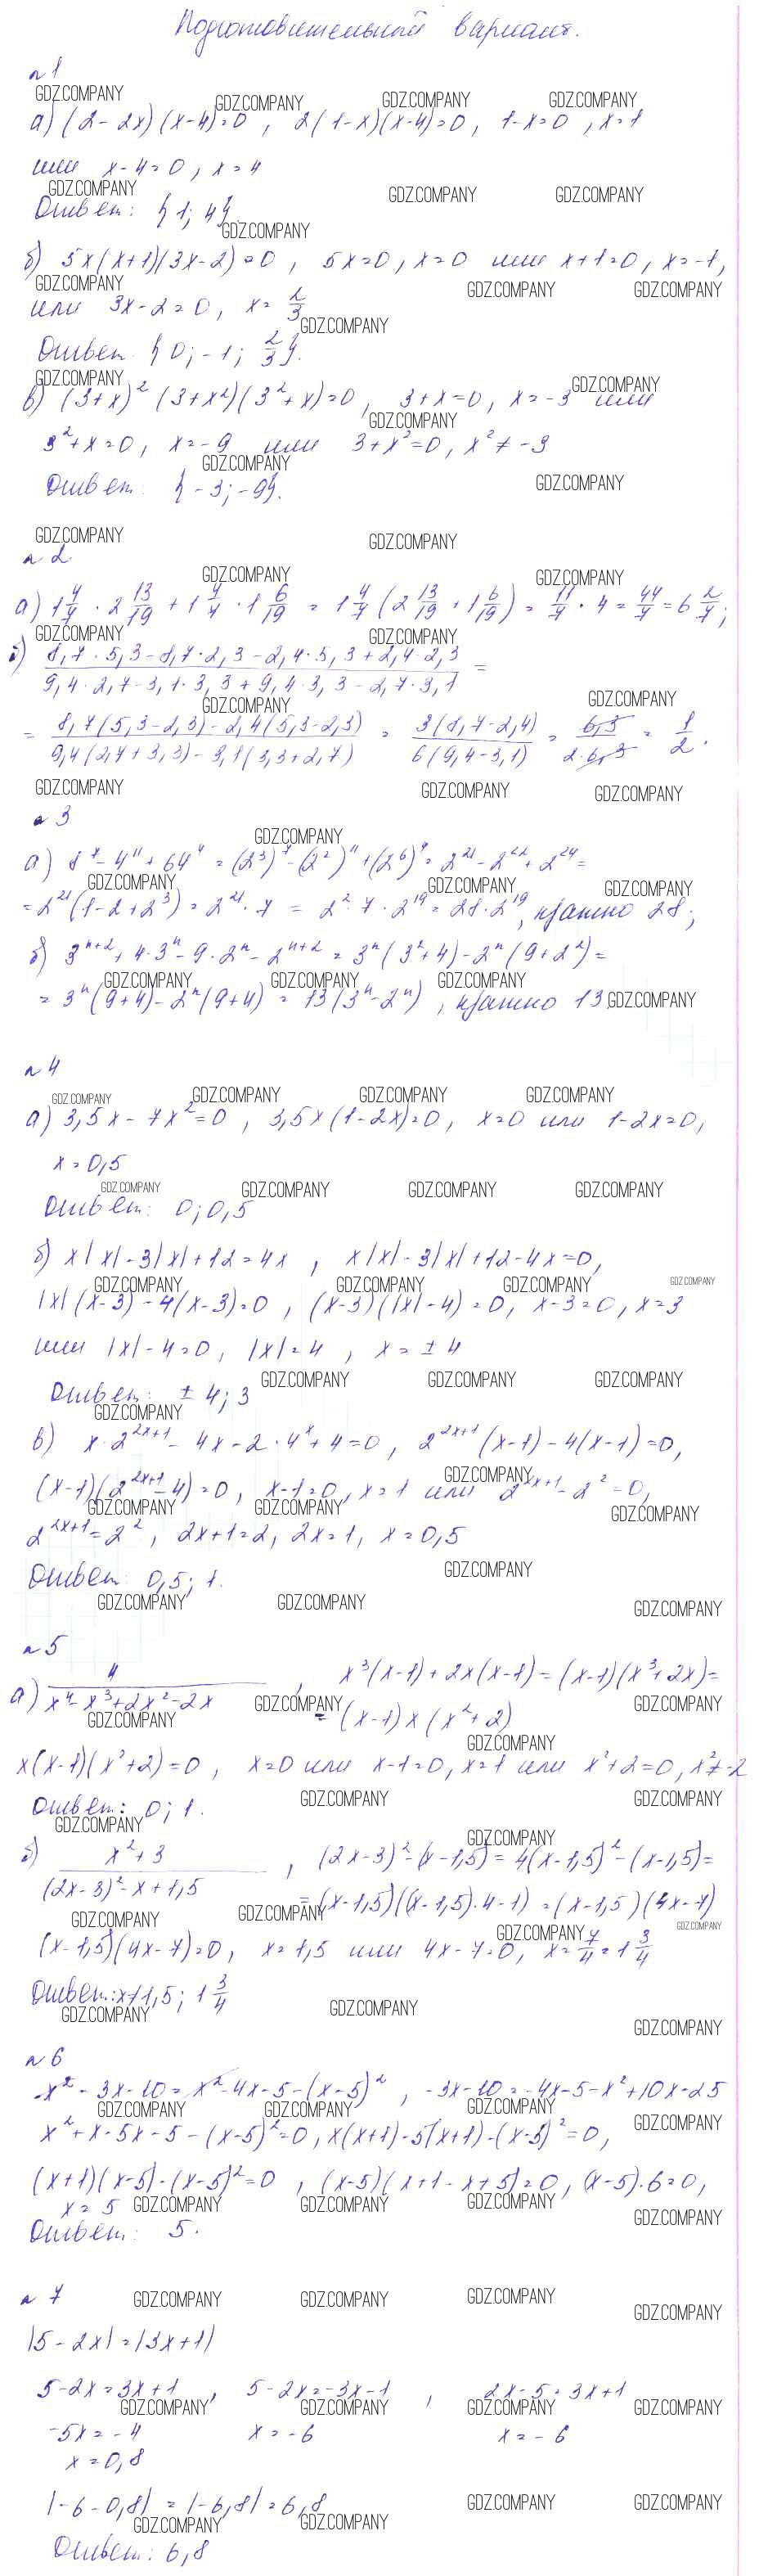 Подготовительный вариант.
№1
GDZ.COMPANY GDZ.COMPANY GDZ.COMPANY GDZ.COMPANY
а) (2-2x)(x-4)=0, 2(1-x)(x-4)=0, 1-x=0, x=1
или x-4=0, x=4
GDZ.COMPANY GDZ.COMPANY GDZ.COMPANY
Ответ: {1; 4}.
GDZ.COMPANY
б) 5x(x+1)(3x-2)=0, 5x=0, x=0 или x+1=0, x=-1,
GDZ.COMPANY GDZ.COMPANY GDZ.COMPANY
или 3x-2=0, x=2/3
GDZ.COMPANY
Ответ: {0; -1; 2/3}.
GDZ.COMPANY GDZ.COMPANY
в) (3+x)²(3+x²)(3²+x)=0, 3+x=0, x=-3 или
GDZ.COMPANY
3²+x=0, x=-9 или 3+x²=0, x²≠-3
GDZ.COMPANY GDZ.COMPANY
Ответ: {-3; -9}.
GDZ.COMPANY GDZ.COMPANY
№2
GDZ.COMPANY GDZ.COMPANY
а) 1 4/7 · 2 13/19 + 1 4/7 · 1 6/19 = 1 4/7 (2 13/19 + 1 6/19) = 11/7 · 4 = 44/7 = 6 2/7;
GDZ.COMPANY GDZ.COMPANY
б) 8,7·5,3-8,7·2,3-2,4·5,3+2,4·2,3 =
9,4·2,7-3,1·3,3+9,4·3,3-2,7·3,1
GDZ.COMPANY GDZ.COMPANY
= 8,7(5,3-2,3)-2,4(5,3-2,3) = 3(8,7-2,4) = 6,3 = 1
9,4(2,7+3,3)-3,1(3,3+2,7) 6(9,4-3,1) 2·6,3 2.
GDZ.COMPANY GDZ.COMPANY GDZ.COMPANY
№3
GDZ.COMPANY
а) 8⁷-4¹¹+64⁴ = (2³)⁷-(2²)¹¹+(2⁶)⁴ = 2²¹-2²²+2²⁴=
GDZ.COMPANY GDZ.COMPANY GDZ.COMPANY
=2²¹(1-2+2³) = 2²¹·7 = 2²·7·2¹⁹=28·2¹⁹, кратно 28;
б) 3ⁿ⁺²+4·3ⁿ-9·2ⁿ-2ⁿ⁺² = 3ⁿ(3²+4)-2ⁿ(9+2²)=
GDZ.COMPANY GDZ.COMPANY GDZ.COMPANY
= 3ⁿ(9+4)-2ⁿ(9+4) = 13(3ⁿ-2ⁿ), кратно 13 GDZ.COMPANY
№4
GDZ.COMPANY GDZ.COMPANY GDZ.COMPANY GDZ.COMPANY
а) 3,5x-7x²=0, 3,5x(1-2x)=0, x=0 или 1-2x=0,
x=0,5
GDZ.COMPANY GDZ.COMPANY GDZ.COMPANY GDZ.COMPANY
Ответ: 0; 0,5
б) x|x|-3|x|+12=4x, x|x|-3|x|+12-4x=0,
GDZ.COMPANY GDZ.COMPANY GDZ.COMPANY GDZ.COMPANY
|x|(x-3)-4(x-3)=0, (x-3)(|x|-4)=0, x-3=0, x=3
или |x|-4=0, |x|=4, x=±4
GDZ.COMPANY GDZ.COMPANY GDZ.COMPANY
Ответ: ±4; 3
GDZ.COMPANY
в) x·2²ˣ⁺¹-4x-2·4ˣ+4=0, 2²ˣ⁺¹(x-1)-4(x-1)=0,
GDZ.COMPANY
(x-1)(2²ˣ⁺¹-4)=0, x-1=0, x=1 или 2²ˣ⁺¹-2²=0,
GDZ.COMPANY GDZ.COMPANY GDZ.COMPANY
2²ˣ⁺¹=2², 2x+1=2, 2x=1, x=0,5
GDZ.COMPANY
Ответ: 0,5; 1.
GDZ.COMPANY GDZ.COMPANY GDZ.COMPANY
№5
а) 4/(x⁴-x³+2x²-2x), x³(x-1)+2x(x-1)=(x-1)(x³+2x)=
GDZ.COMPANY GDZ.COMPANY GDZ.COMPANY
=(x-1)x(x²+2)
GDZ.COMPANY
x(x-1)(x²+2)=0, x=0 или x-1=0, x=1 или x²+2=0, x²≠-2
GDZ.COMPANY GDZ.COMPANY
Ответ: 0; 1.
GDZ.COMPANY GDZ.COMPANY
б) (x²+3)/((2x-3)²-x+1,5), (2x-3)²-(x-1,5)=4(x-1,5)²-(x-1,5)=
=(x-1,5)((x-1,5)·4-1)=(x-1,5)(4x-7)
GDZ.COMPANY GDZ.COMPANY GDZ.COMPANY GDZ.COMPANY
(x-1,5)(4x-7)=0, x=1,5 или 4x-7=0, x=7/4=1 3/4
Ответ: x≠1,5; 1 3/4
GDZ.COMPANY GDZ.COMPANY GDZ.COMPANY
№6
x²-3x-10=x²-4x-5-(x-5)², -3x-10=-4x-5-x²+10x-25
GDZ.COMPANY GDZ.COMPANY GDZ.COMPANY GDZ.COMPANY
x²+x-5x-5-(x-5)²=0, x(x+1)-5(x+1)-(x-5)²=0,
(x+1)(x-5)-(x-5)²=0, (x-5)(x+1-x+5)=0, (x-5)·6=0,
x=5 GDZ.COMPANY GDZ.COMPANY GDZ.COMPANY GDZ.COMPANY
Ответ: 5.
№7 GDZ.COMPANY GDZ.COMPANY GDZ.COMPANY GDZ.COMPANY
|5-2x|=|3x+1|
5-2x=3x+1, 5-2x=-3x-1, 2x-5=3x+1
GDZ.COMPANY GDZ.COMPANY GDZ.COMPANY GDZ.COMPANY
-5x=-4 x=-6 x=-6
x=0,8
|-6-0,8|=|-6,8|=6,8 GDZ.COMPANY GDZ.COMPANY
GDZ.COMPANY GDZ.COMPANY
Ответ: 6,8